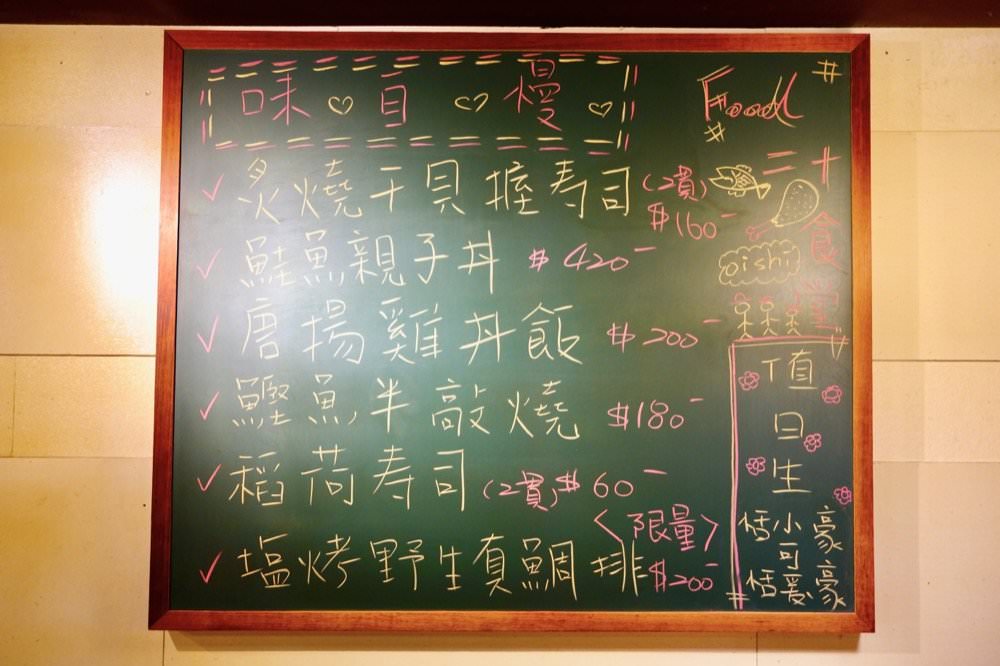 味自慢
炙燒干貝握寿司(2貫)$160-
鮭魚親子丼 $420-
唐揚雞丼飯 $200-
鰹魚半敲燒 $180-
稻荷寿司(2貫)$60-
〈限量〉
塩烤野生真鯛排$200-
Food
二十
食堂
oishi
値
日
生
恬小豪
可
恬爱豪